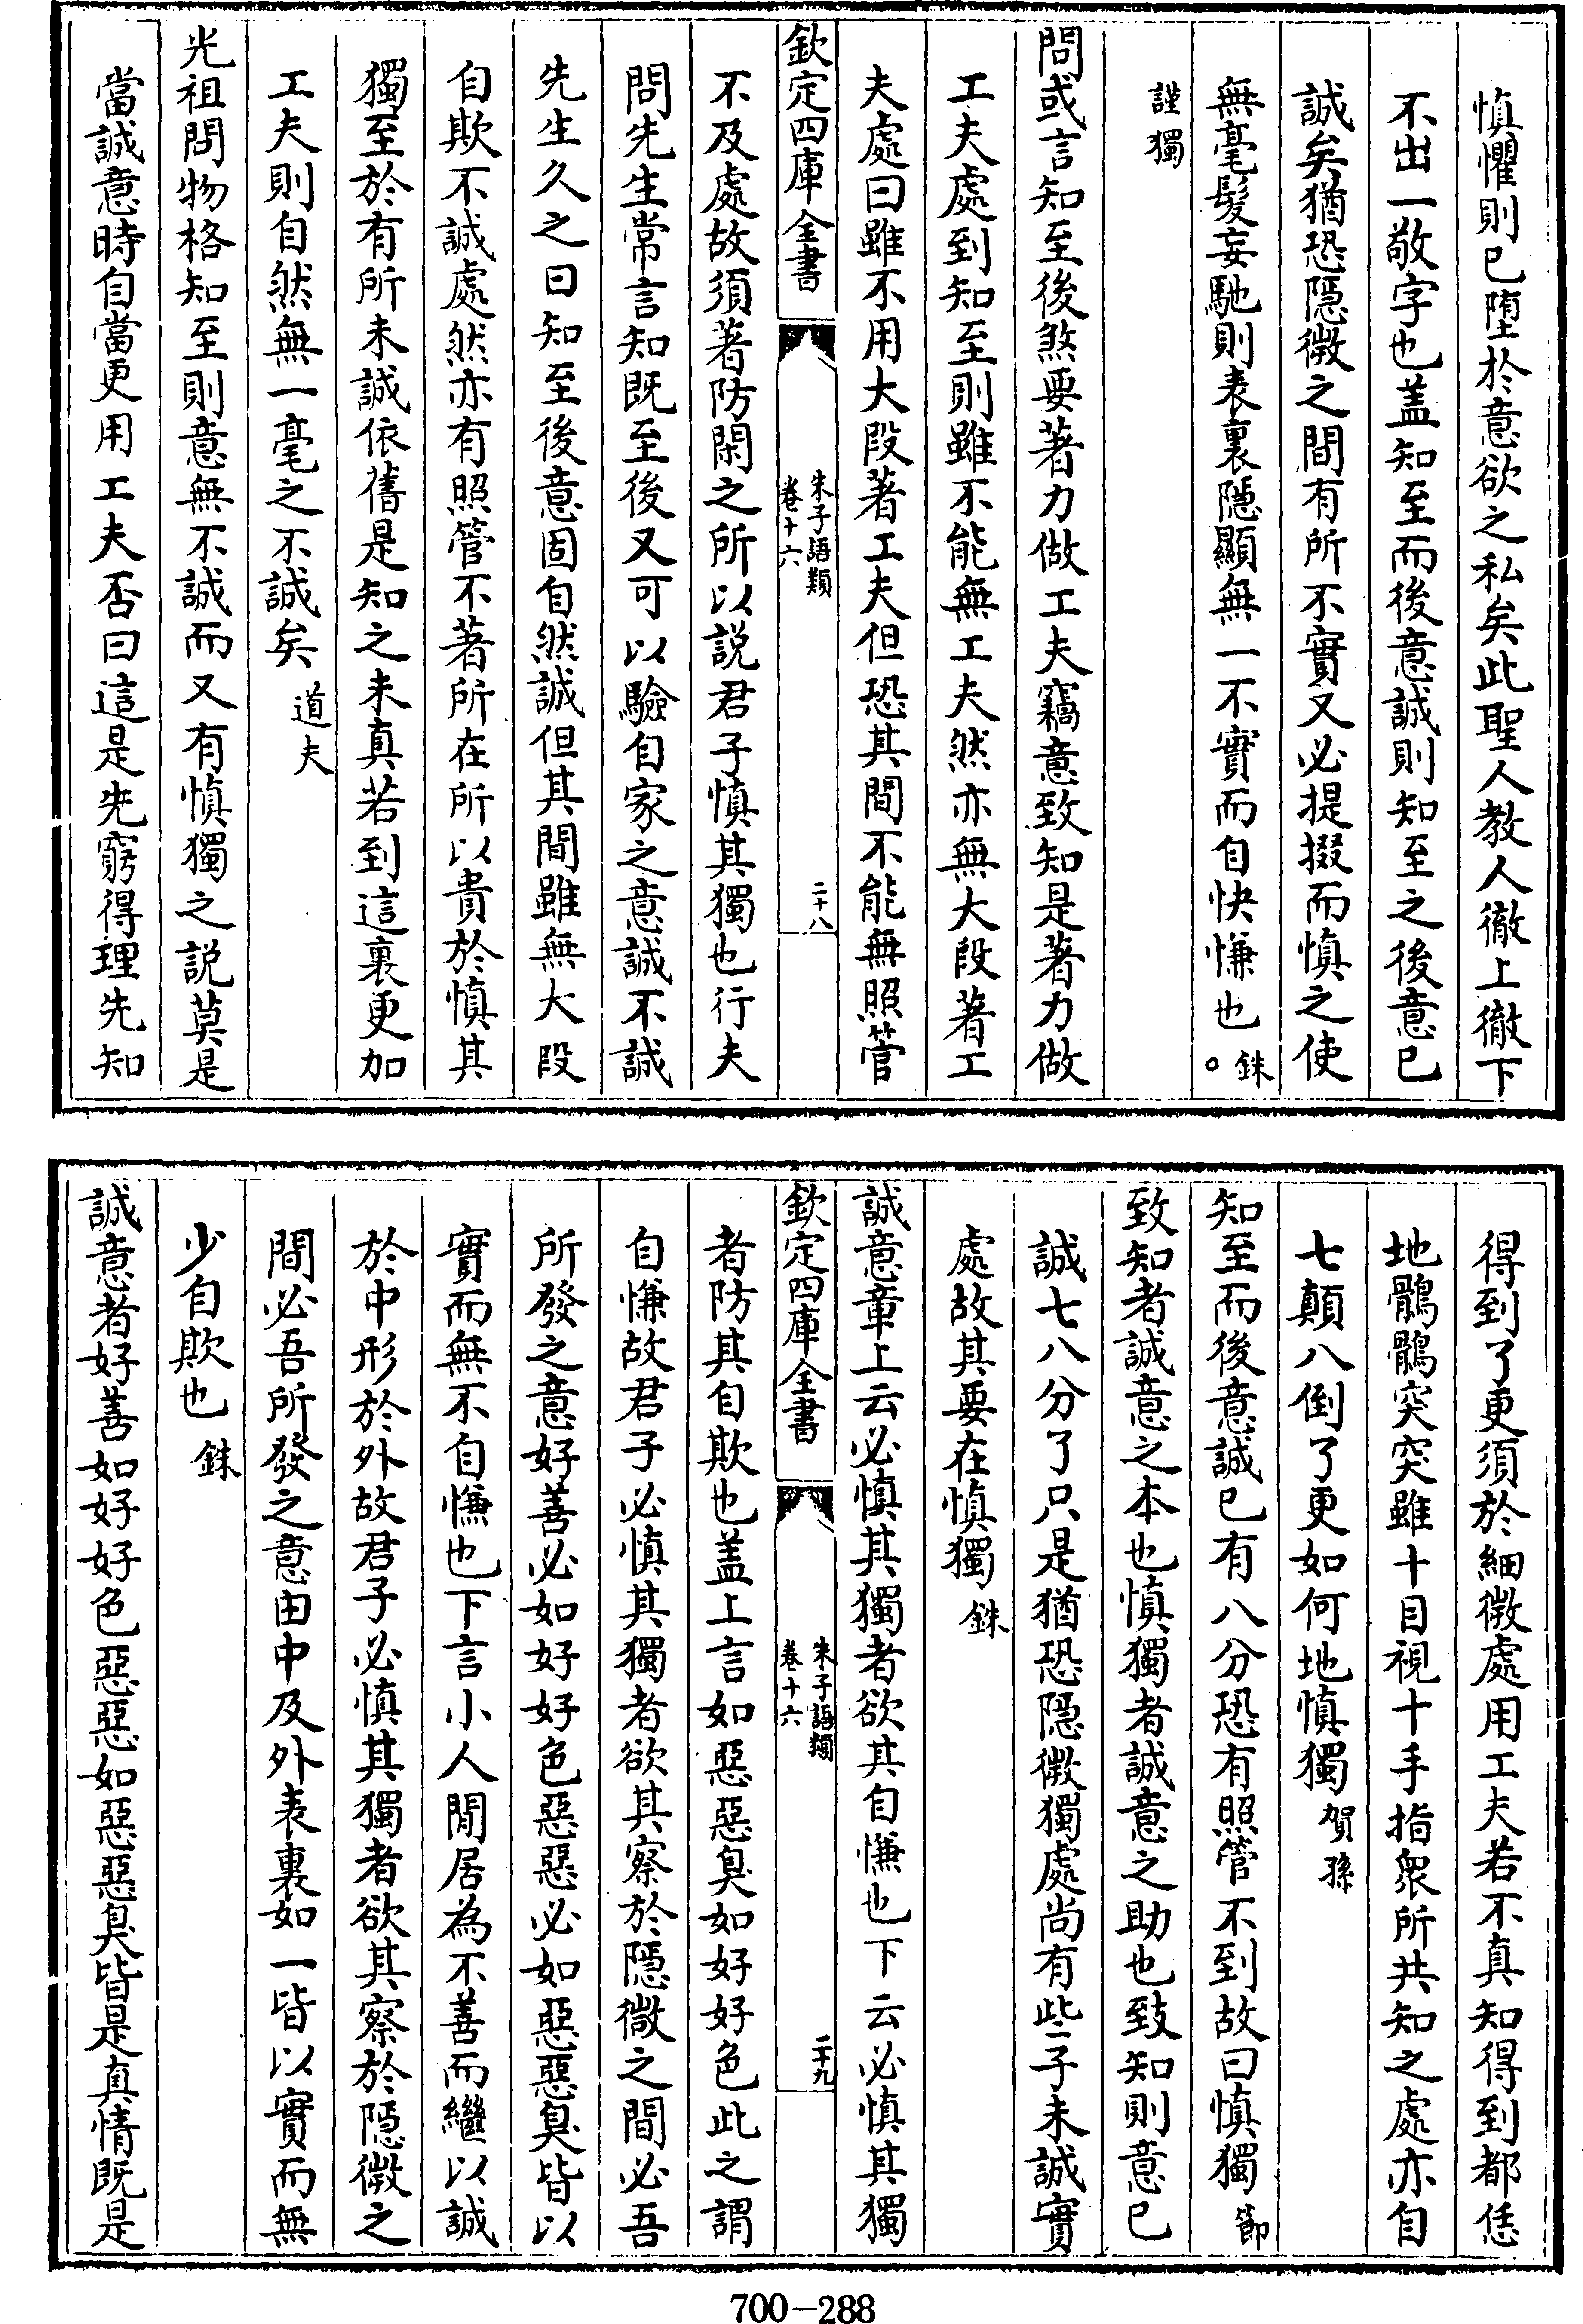 慎懼則已墮於意欲之私矣此聖人教人徹上徹下
不出一敬字也盖知至而後意誠則知至之後意已
誠矣猶恐隱微之間有所不實又必提掇而慎之使
無毫髮妄馳則表裏隱顯無一不實而自快慊也銖。
謹獨
問或言知至後煞要著力做工夫竊意致知是著力做
工夫處到知至則雖不能無工夫然亦無大段著工
夫處曰雖不用大段著工夫但恐其間不能無照管
欽定四庫全書
朱子語類
卷十六
二十八
不及處故須著防閑之所以説君子慎其獨也行夫
問先生常言知既至後又可以驗自家之意誠不誠
先生久之曰知至後意固自然誠但其間雖無大段
自欺不誠處然亦有照管不著所在所以貴於慎其
獨至於有所未誠依舊是知之未真若到這裏更加
工夫則自然無一毫之不誠矣道夫
光祖問物格知至則意無不誠而又有慎獨之説莫是
當誠意時自當更用工夫否曰這是先窮得理先知
得到了更須於細微處用工夫若不真知得到都恁
地鶻鶻突突雖十目視十手指衆所共知之處亦自
七顛八倒了更如何地慎獨賀孫
知至而後意誠已有八分恐有照管不到故曰慎獨節
致知者誠意之本也慎獨者誠意之助也致知則意已
誠七八分了只是猶恐隱微獨處尚有些子未誠實
處故其要在慎獨銖
誠意章上云必慎其獨者欲其自慊也下云必慎其獨
欽定四庫全書
朱子語類
卷十六
二十九
者防其自欺也盖上言如惡惡臭如好好色此之謂
自慊故君子必慎其獨者欲其察於隱微之間必吾
所發之意好善必如好好色惡惡必如惡惡臭皆以
實而無不自慊也下言小人閒居為不善而繼以誠
於中形於外故君子必慎其獨者欲其察於隱微之
間必吾所發之意由中及外表裏如一皆以實而無
少自欺也銖
誠意者好善如好好色惡惡如惡惡臭皆是真情既是
700-288